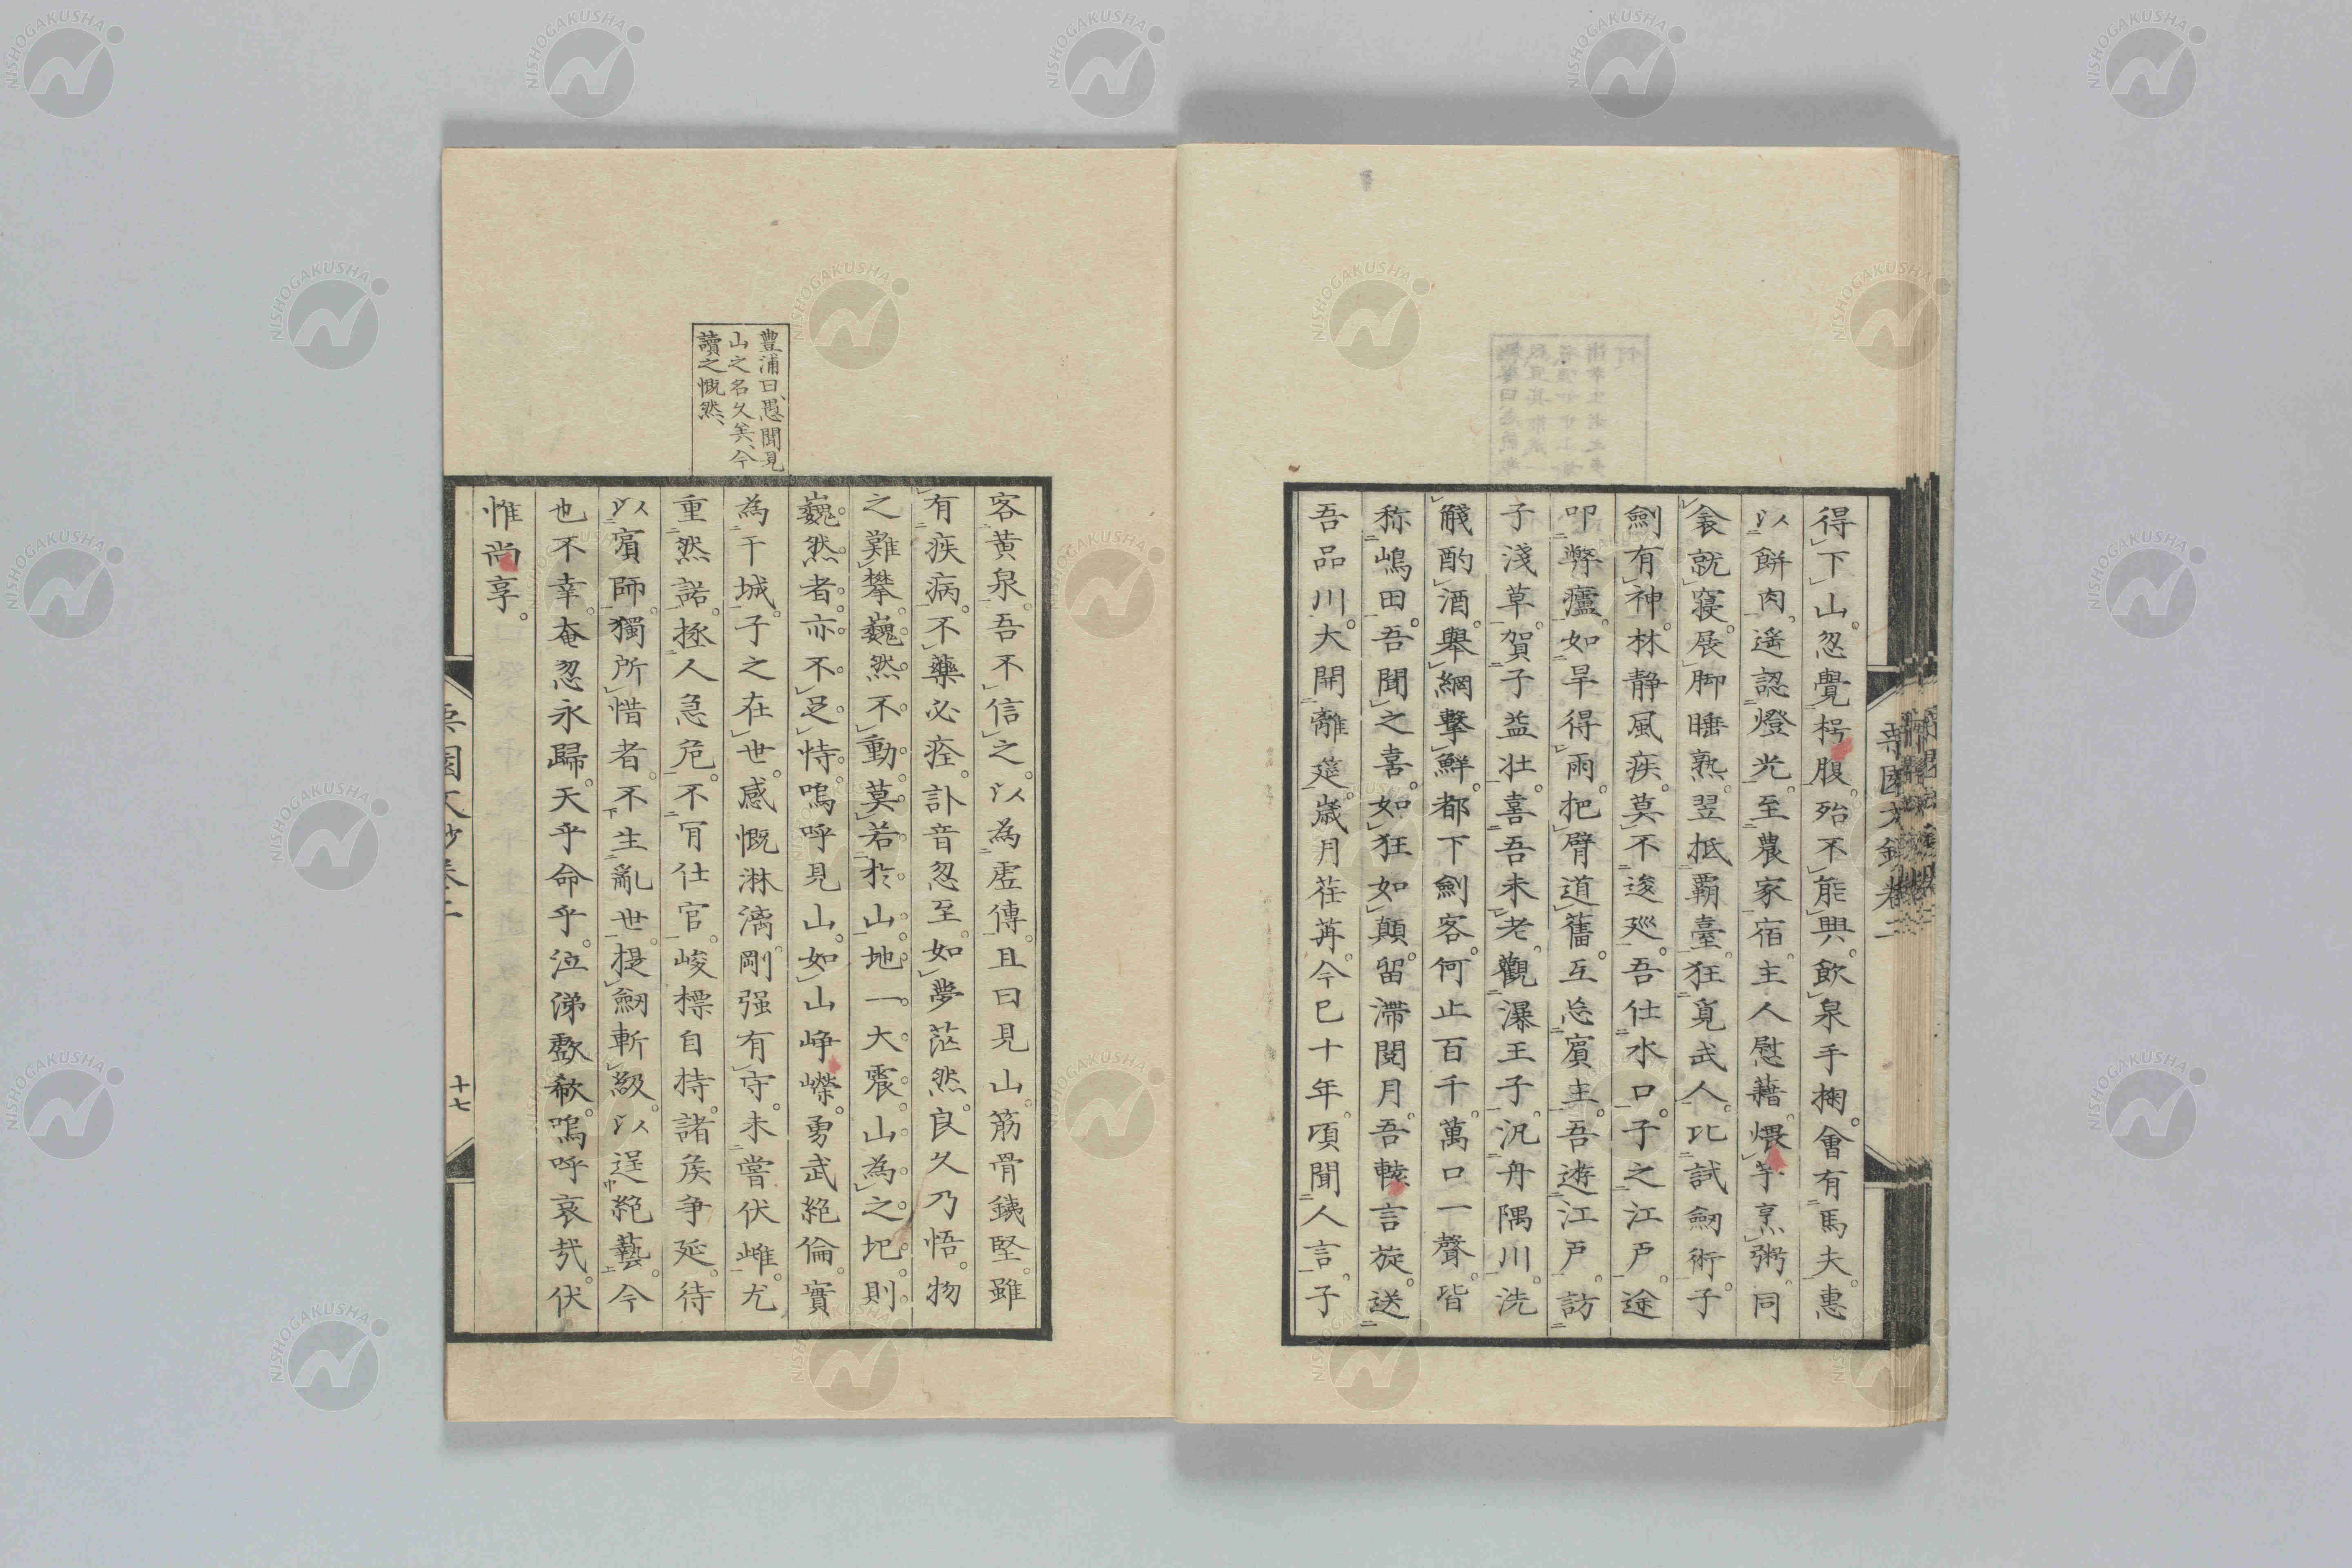 得下山。忽覺枵腹。殆不能興。飲泉手掬。會有馬夫。惠
以餅肉。遙認燈光。至農家宿。主人慰藉。煨芋烹粥。同
衾就寢。展脚睡熟。翌抵覇臺。狂覓武人。比試劍術。子
劍有神。林靜風疾。莫不逡巡。吾仕水口。子之江戶。途
叩弊廬。如旱得雨。把臂道舊。互忘賓主。吾遊江戶。訪
子淺草。賀子益壯。喜吾未老。觀瀑王子。汎舟隅川。洗
觴酌酒。舉網擊鮮。都下劍客。何止百千。萬口一聲。皆
称嶋田。吾聞之喜。如狂如顛。留滯閱月。吾輚言旋。送
吾品川。大開離筵。歲月荏苒。今已十年。頃聞人言。子
豊浦曰、愚聞見
山之名久矣、今
讀之慨然、
客黄泉。吾不信之。以為虛傳。且曰見山。筋骨鐵堅。雖
有疾病。不藥必痊。訃音忽至。如夢茫然。良久乃悟。物
之難攀。巍然不動。莫若於山。地一大震。山為之圯。則
巍然者。亦不足恃。嗚呼見山。如山崢嶸。勇武絕倫。實
為干城。子之在世。感慨淋漓。剛强有守。未嘗伏雌。尤
重然諾。拯人急危。不肎仕官。峻標自持。諸矦爭延。待
以賓師。獨所惜者。不生亂世。提劍斬級。以逞絕藝。今
也不幸。奄忽永歸。天乎命乎。泣涕歔欷。嗚呼哀哉。伏
惟尚享。
十七